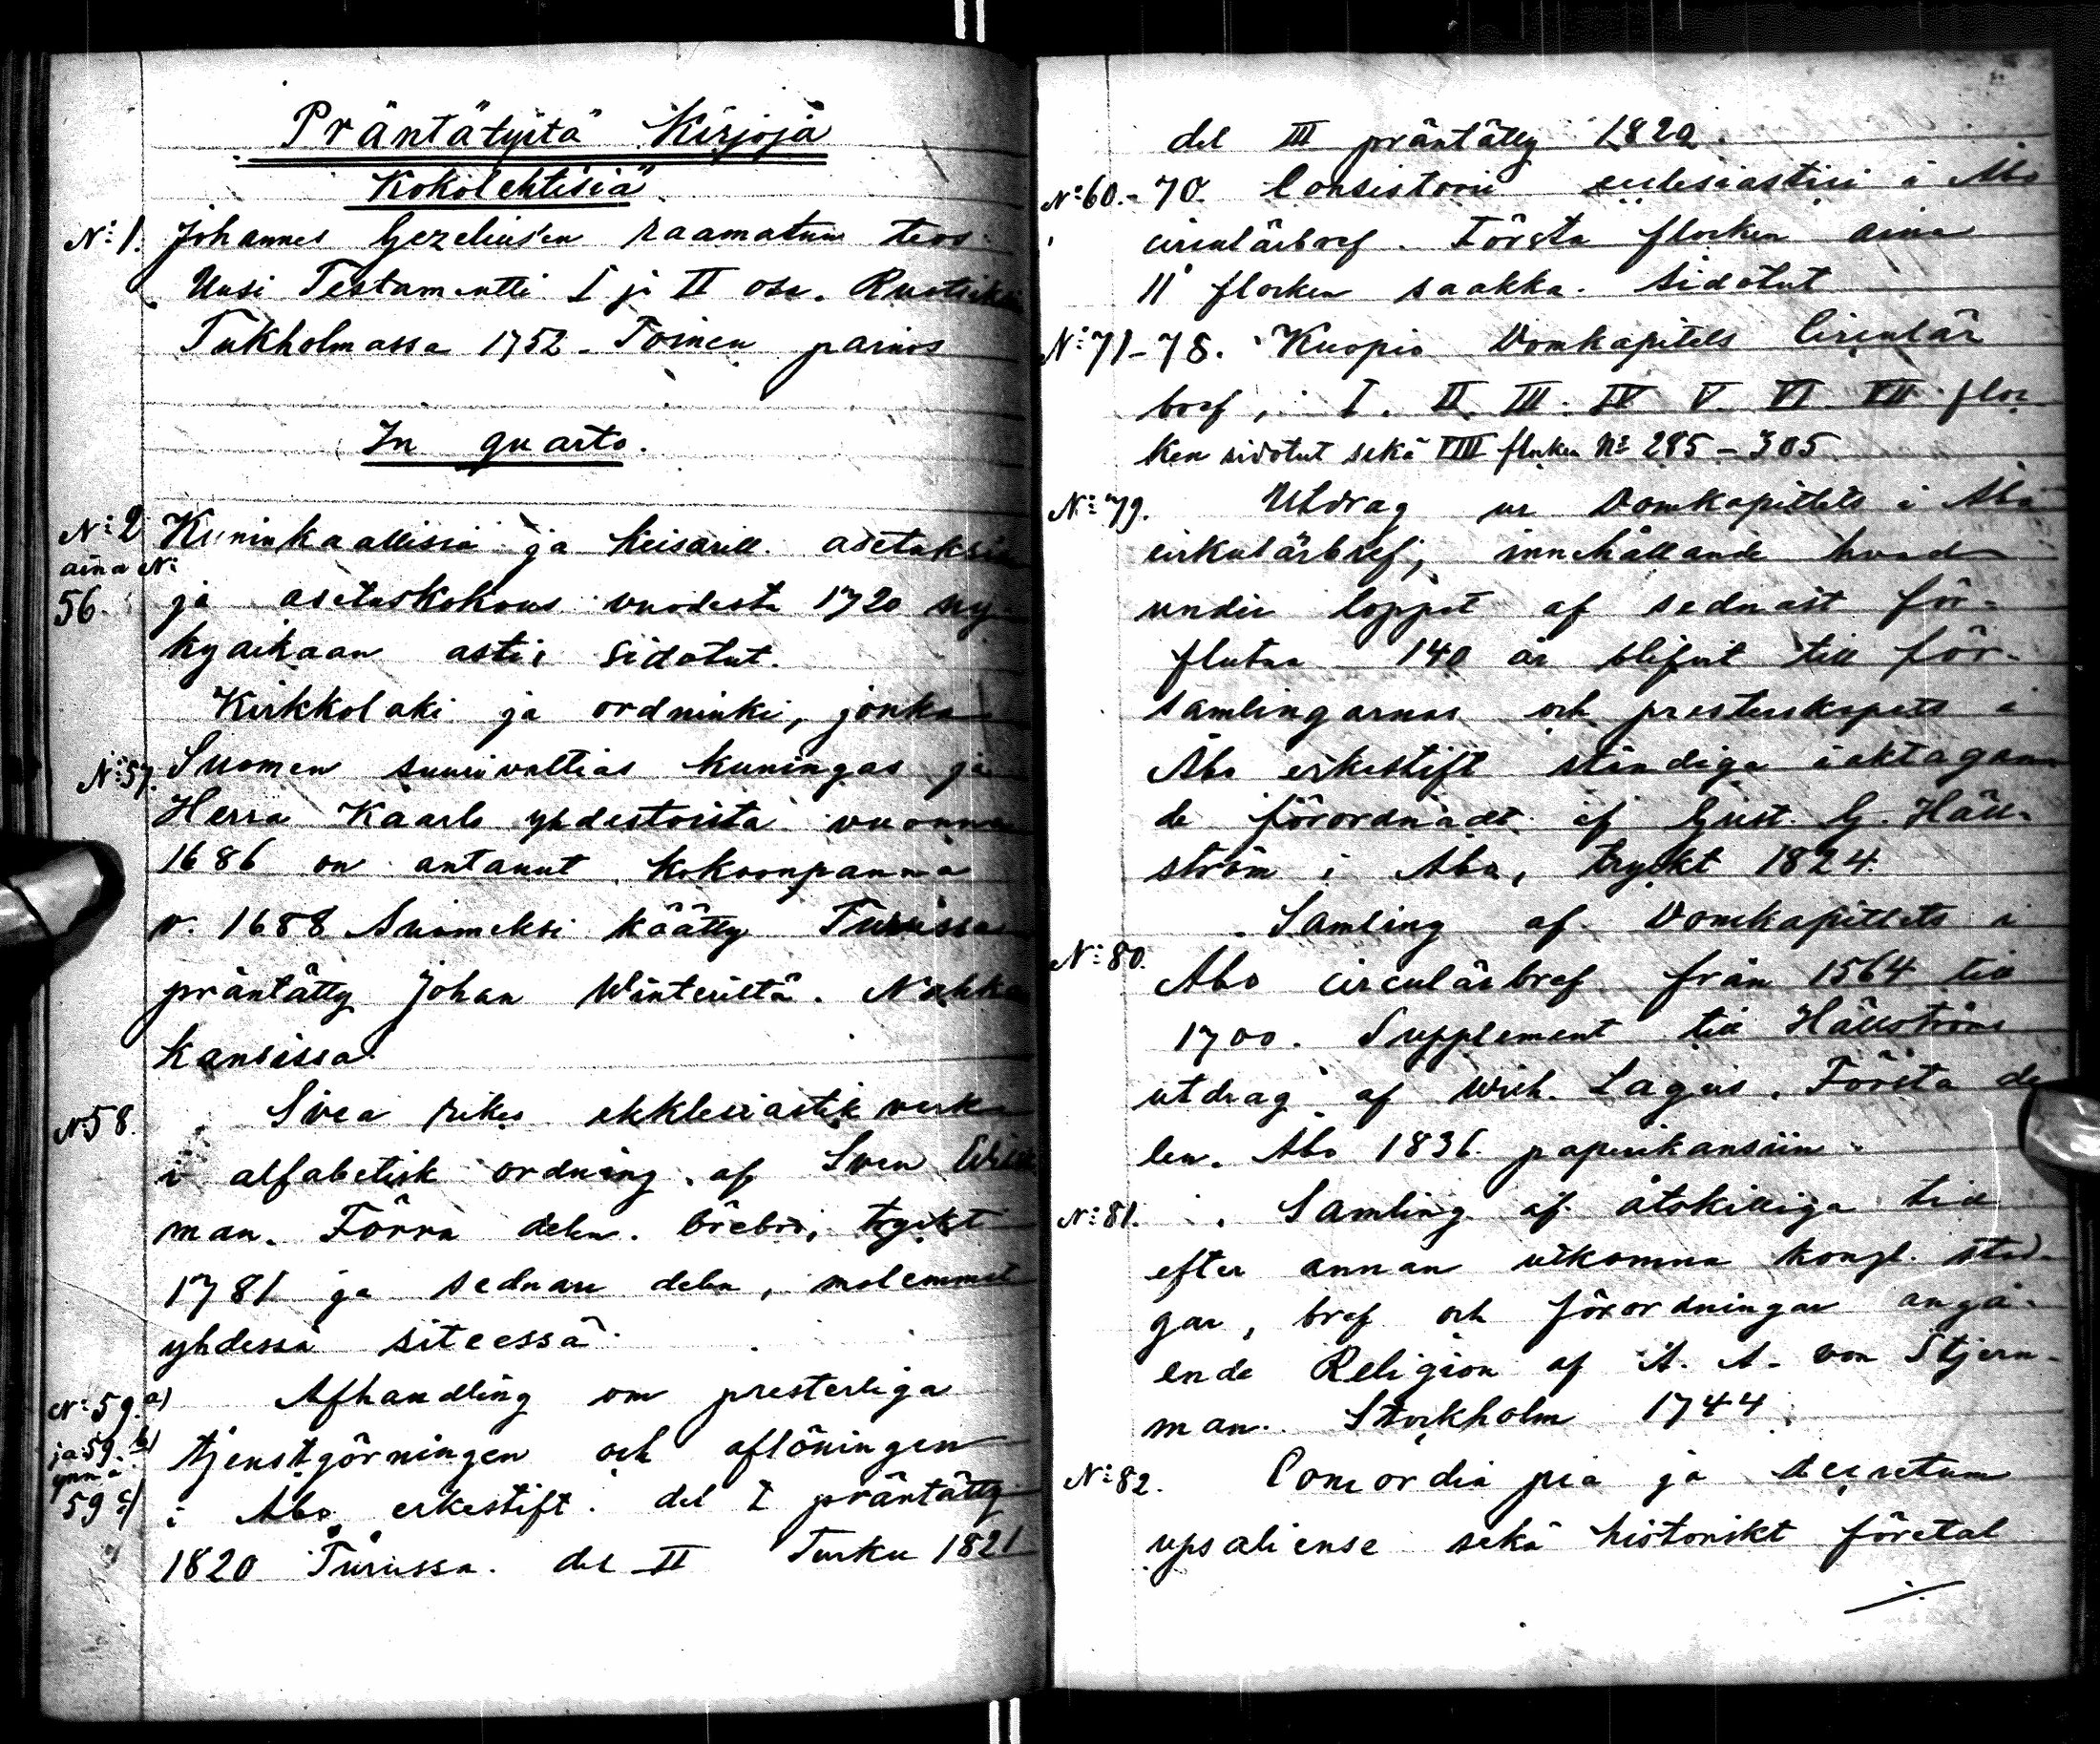 Präntätyitä Kirjoja
Kokolehtisiä
N:o 1. Johannes Gezeliusen raamatun teos.
Uusi Testamentti I ja II osa. Ruotsiksi
Tukholmassa 1752. Toinen painos
In quarto.
N:o 2 Kuninkaallisia ja keisarill. asetuksia
aina N:o
56. ja asetuskokous vuodesta 1720 ny-
kyaikaan asti, sidotut.
Kirkkolaki ja ordninki, jonka
N:o 57. Suomen suurivaltias kuningas ja
Herra Kaarlo yhdestoista vuonna
1686 on antanut kokoonpanna
v. 1688 Suomeksi käätty Turussa
präntätty Johan Winteriltä. Nahka
kansissa.
N:o 58. Svea rikes ekklesiastik verk
i alfabetisk ordning, af Sven Wilsk
man. Förra delen. Örebro, tryckt
1781 ja sednare delen, molemmat
yhdessä siteessä.
N:o 59. a) Afhandling om presterliga
ja 59. b) tjenstgörningen och aflöningen
ynnä
59 c) i Åbo erkestift. del I präntätty
1820 Turussa. del II Turku 1821
del III präntätty 1822.
N:o 60.-70. Consistorii ecclesiastici i Åbo
circulärbref. Första flocken aina
11 flocken saakka. Sidotut
N:o 71-78. Kuopio Domkapitels Circulär
bref, I. II. III. IV V. VI VII floc
ken sidotut sekä VIII flocken N:o 285-305
N:o 79. Utdrag ur Domkapitlets i Åbo
cirkulärbref, innehållande hvad
under loppet af sednast för-
flutna 140 år blifvit till för-
samlingarnas och presterskapets i
Åbo erkestift ständiga iakttagan
de förordnadt af Gust. G. Häll-
ström i Åbo, tryckt 1824.
Samling af Domkapitlets i
N:o 80. Åbo circulärbref från 1564 till
1700. Supplement till Hällströms
utdrag af Wilh. Lagus. Första de
len. Åbo 1836. paperikansiin.
N:o 81. Samling af åtskilliga tid
efter annan utkomna kongl. stad-
gar, bref och förordningar angå-
ende Religion af A. A. von Stjern-
man. Stockholm 1744.
N:o 82. Concordia pia ja decretum
upsaliense sekä historikt företal
./.